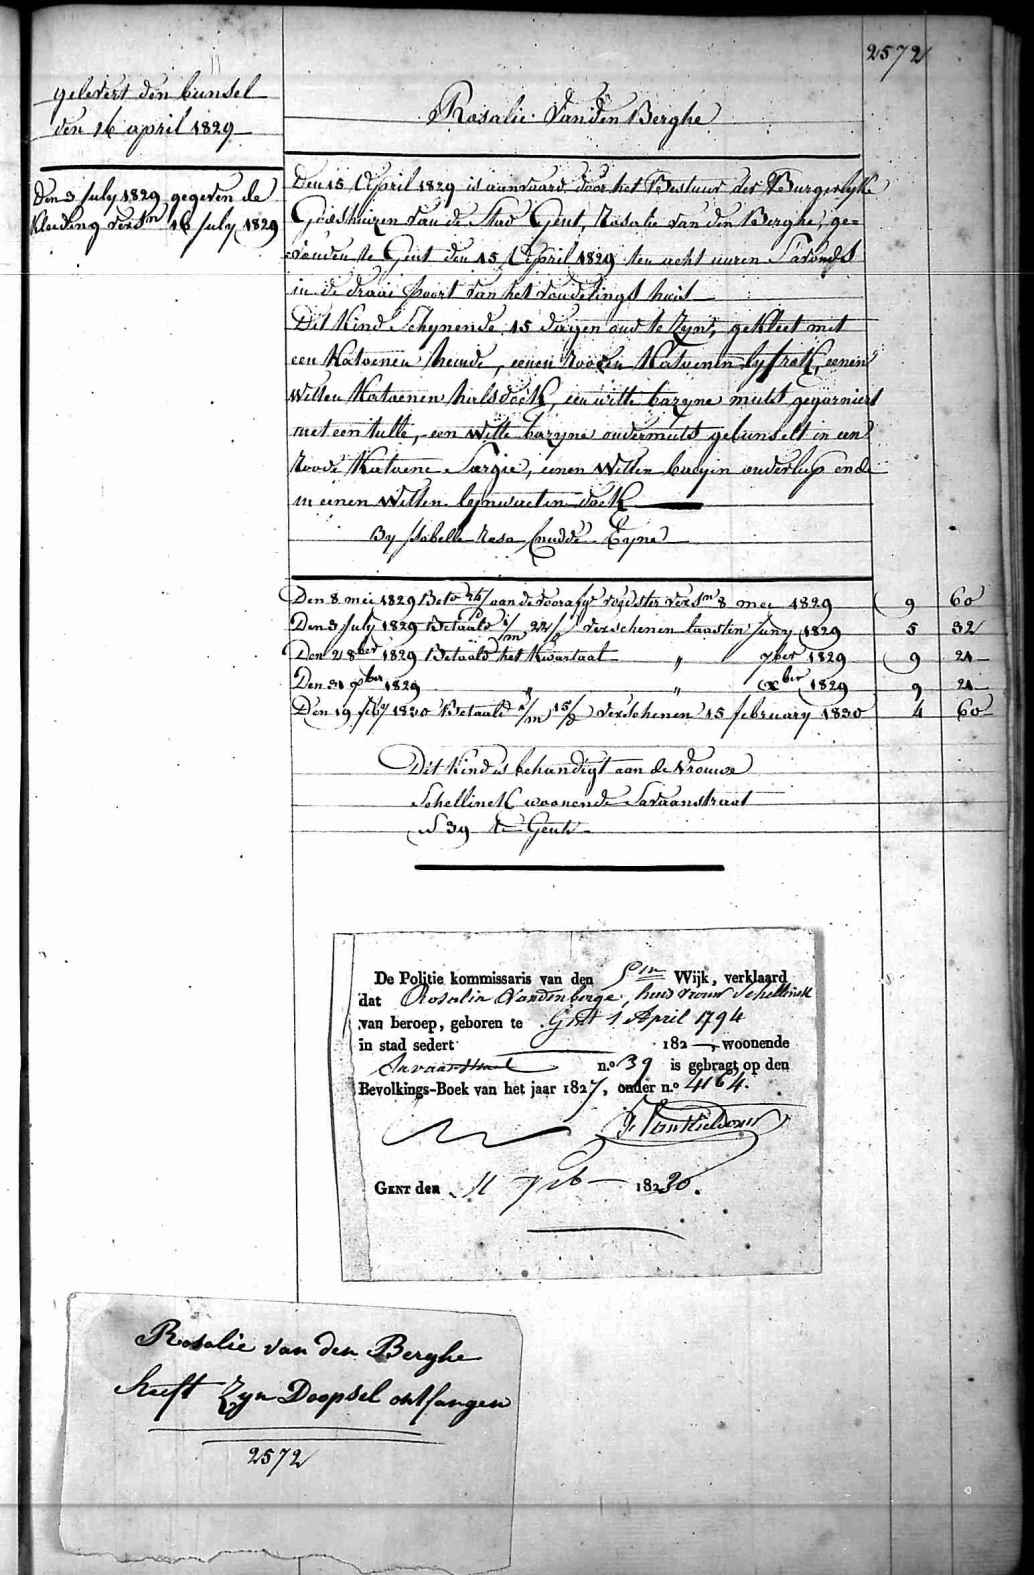 2572
gelevert den bunsel
den 16 april 1829
Rosalie Van den Berghe
Den 3 July 1829 gegeven de
kleeding versn 16 July 1829
Den 15 April 1829 is aanvaard door het Bestuur der Burgerlyke
Godshuizen van de Stad Gent, Rosalie van den Berghe, ge=
vonden te Gent den 15 April 1829 ten acht uuren S'avonds
in de draai poort van het vondelings huis
Dit Kind Schynende 15 dagen oud te zyn, gekleet met
een Katoenen hemde, eenen rooden Katoenen lyfrok, eenen
Witten Katoenen halsdoek, een witte bazyne muts gegarniert
met een tulle, een witte bazyne ondermuts gebunselt in een
Roode Katoene Sargie, eenen Witten bazyn onderlyf ende
in eenen Witten lynwaeten doek
By Isabelle Rosa Cnudde Eyne
Den 8 mei 1829 Betd aan de voorafge versn 8 mei 1829 9 60
Den 3 July 1829 Betaald 1/m 22/d verschenen laasten Juny 1829 5 32
Den 28ber 1829 Betaald het Kwartaal " 7ber 1829 9 21
Den 31 xber 1829 " " xber 1829 9 21
Den 19 feby 1830 Betaald 1/m 15/d verschenen 15 february 1830 4 60
Dit Kind is behandigt aan de Vrouwe
Schellinck woonende Savaanstraat
N 39 te Gent
De Politie kommissaris van den 5en Wijk, verklaard
dat Rosalia Vandenberge, huisvrouw Schellinck
van beroep, geboren te Gent 1 April 1794
in stad sedert 182 woonende
Savaanstraat n.o 39 is gebragt op den
Bevolkings-Boek van het jaar 1827, onder n.o 4164.
GENT den 11 feb 1830.
Rosalie van den Berghe
heeft Zyn Doopsel ontfangen
2572